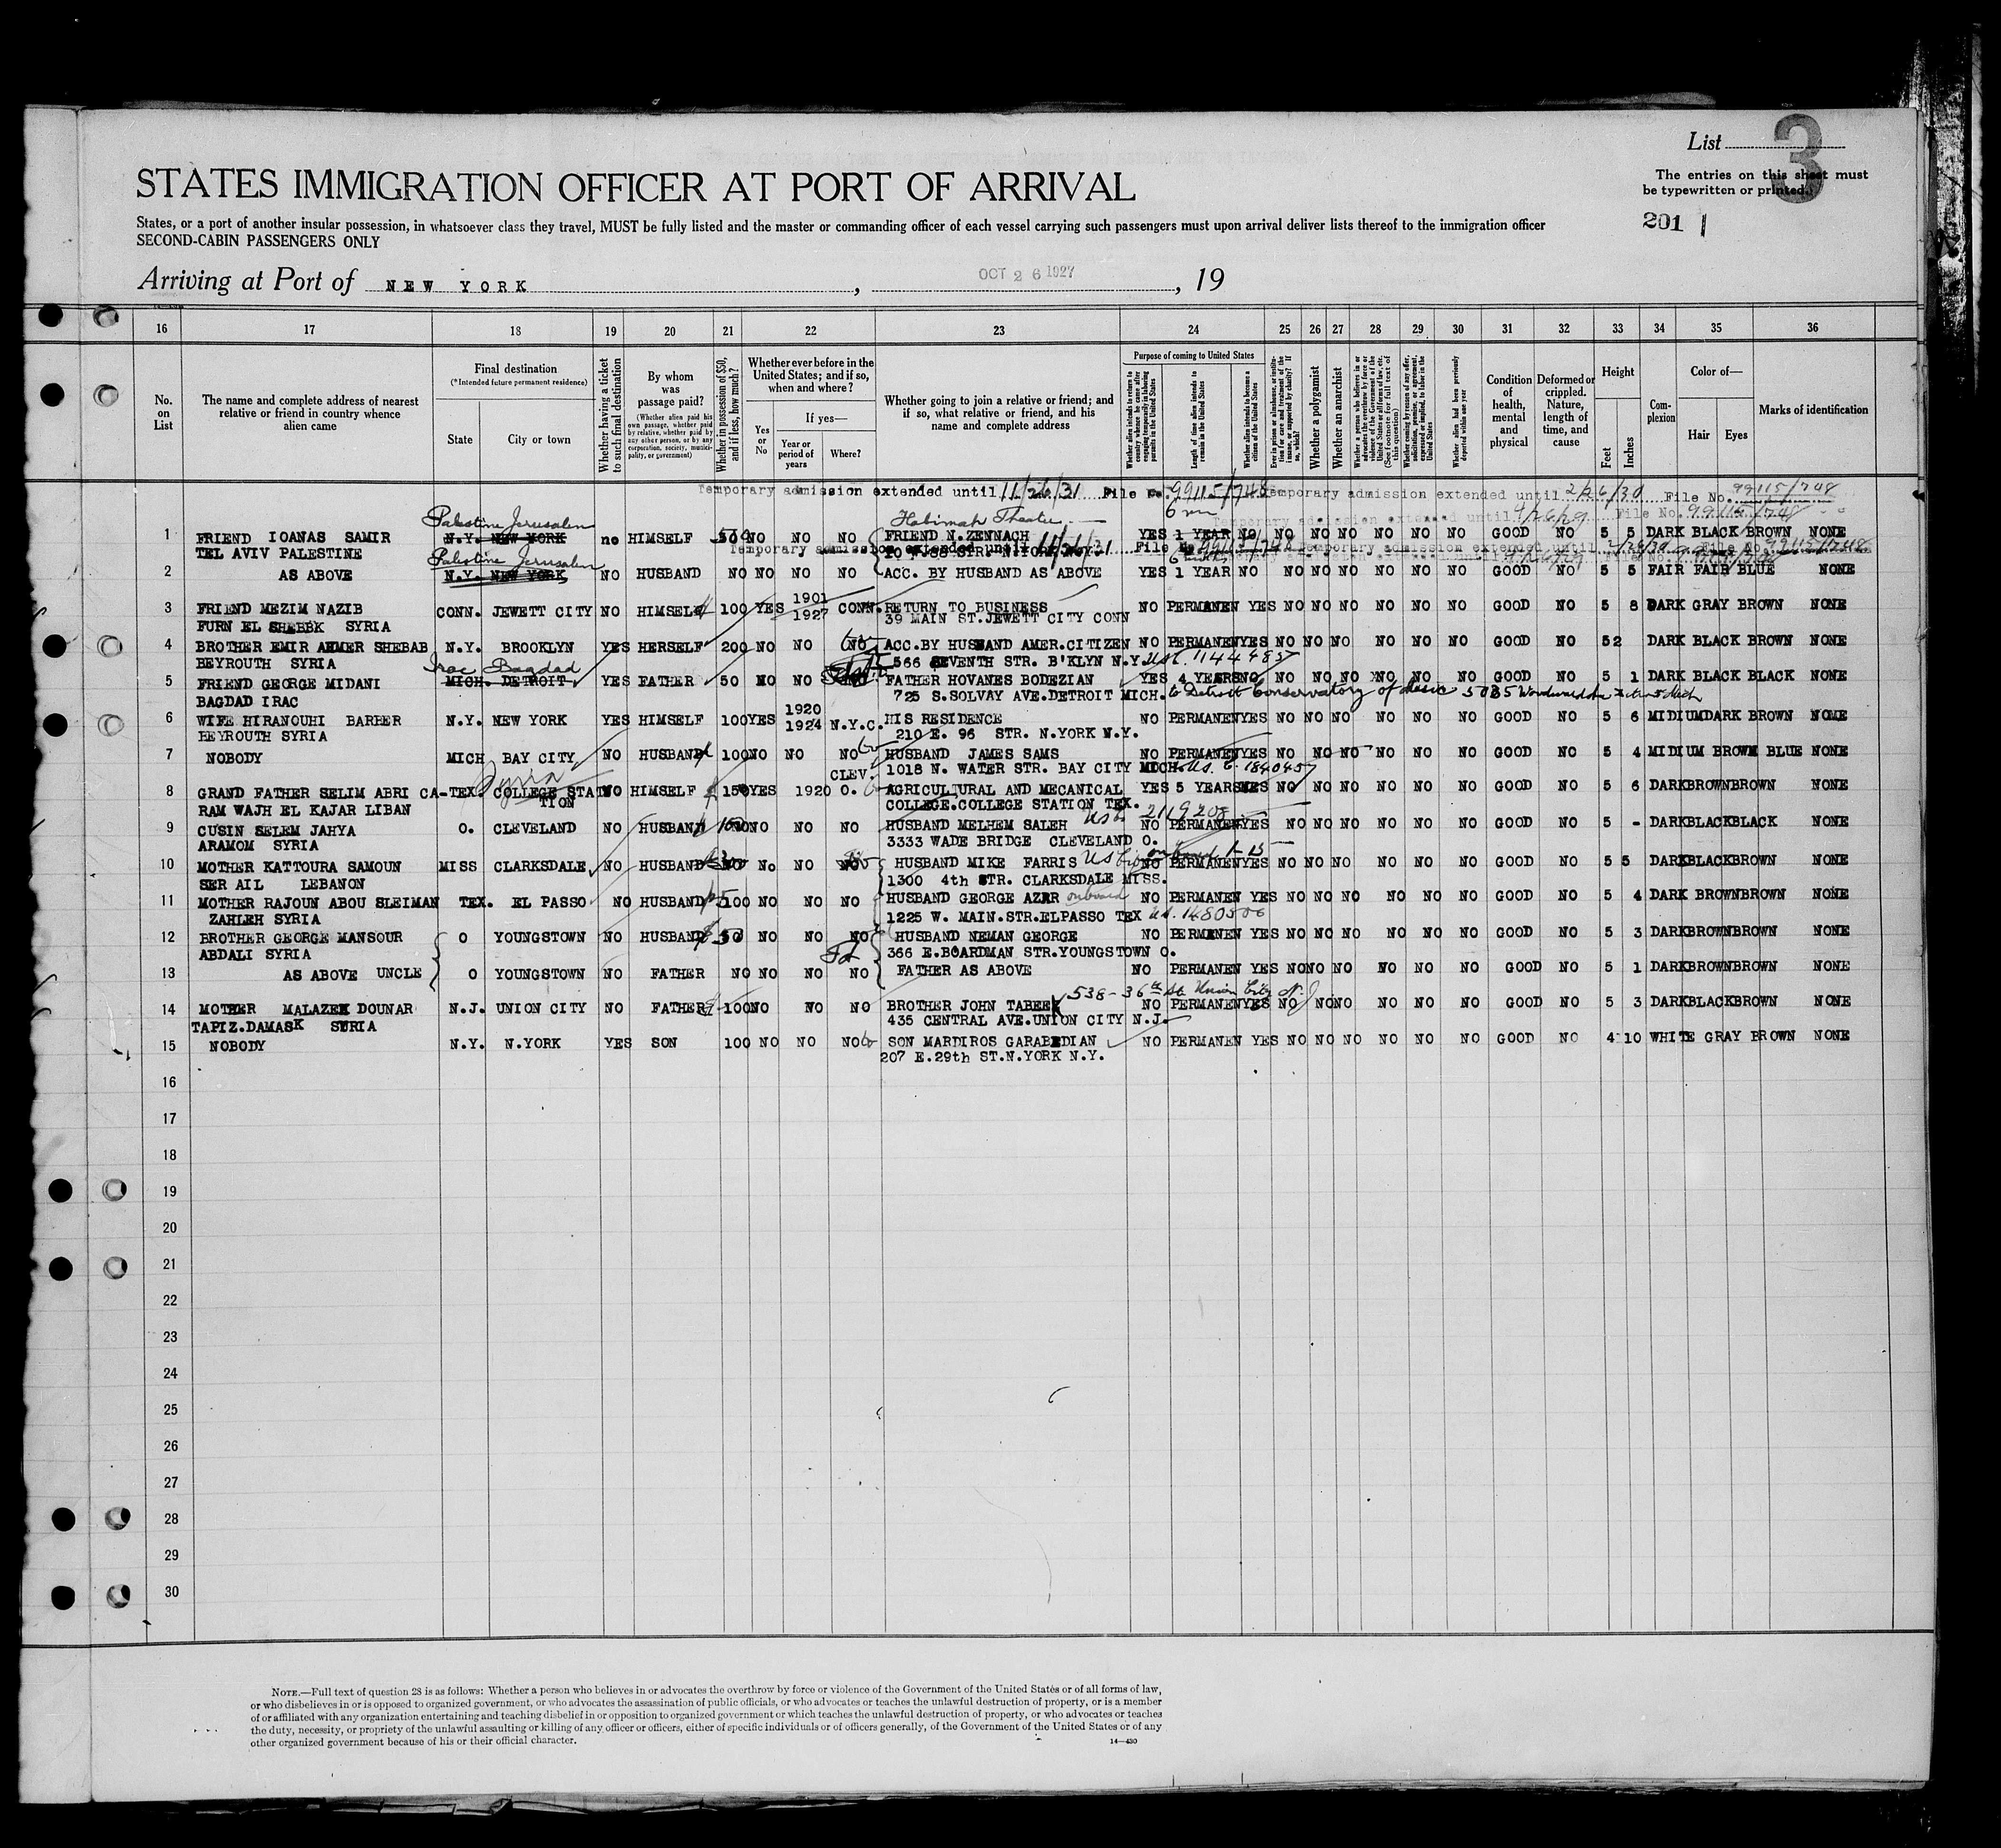 List 3
The entries on this sheet must
be typewritten or printed.
201
STATES IMMIGRATION OFFICER AT PORT OF ARRIVAL
States, or a port of another insular possession, in whatsoever class they travel, MUST be fully listed and the master or commanding officer of each vessel carrying such passengers must upon arrival deliver lists thereof to the immigration officer
SECOND-CABIN PASSENGERS ONLY
Arriving at Port of NEW YORK, OCT 26 1927, 19
16 17 18 19 20 21 22 23 24 25 26 27 28 29 30 31 32 33 34 35 36
No. on List
The name and complete address of nearest relative or friend in country whence alien came
Final destination
(*Intended future permanent residence)
State
City or town
Whether having a ticket to such final destination
By whom was passage paid?
(Whether alien paid his own passage, whether paid by relative, whether paid by any other person, or by any corporation, society, municipality, or government)
Whether in possession of $50, and if less, how much?
Whether ever before in the United States; and if so, when and where?
Yes or No
If yes—
Year or period of years
Where?
Whether going to join a relative or friend; and if so, what relative or friend, and his name and complete address
Purpose of coming to United States
Whether alien intends to return to country whence he came after engaging temporarily in laboring pursuits in the United States
Length of time alien intends to remain in the United States
Whether alien intends to become a citizen of the United States
Ever in prison or almshouse, or institution for care and treatment of the insane, or supported by charity? If so, which?
Whether a polygamist
Whether anarchist
Whether a person who believes in or advocates the overthrow by force or violence of the Government of the United States or all forms of law, etc. (See footnote for full text of this question)
Whether coming by reason of any offer, solicitation, promise, or agreement, expressed or implied, to labor in the United States
Whether alien had been previously deported within one year
Condition of health, mental and physical
Deformed or crippled. Nature, length of time, and cause
Height
Feet
Inches
Complexion
Color of—
Hair
Eyes
Marks of identification
Temporary admission extended until 11/26/31 File No. 99115/748 Temporary admission extended until 2/26/30 File No. 99115/748
Temporary admission extended until 4/26/29 File No. 99115/748
Palestine Jerusalem
Habimah Theatre
1 FRIEND IOANAS SAMIR N.Y. NEW YORK no HIMSELF 50 NO NO NO FRIEND N.ZENNACH YES 1 YEAR NO NO NO NO NO NO NO GOOD NO 5 5 DARK BLACK BROWN NONE
TEL AVIV PALESTINE
Temporary admission extended until File No. 99115/748 Temporary admission extended until 2/26/30 File No. 99115/748
Palestine Jerusalem
2 AS ABOVE N.Y. NEW YORK NO HUSBAND NO NO NO NO ACC. BY HUSBAND AS ABOVE YES 1 YEAR NO NO NO NO NO NO NO GOOD NO 5 5 FAIR FAIR BLUE NONE
3 FRIEND MEZIM NAZIB CONN. JEWETT CITY NO HIMSELF 100 YES 1901 1927 CONN. RETURN TO BUSINESS NO PERMANEN YES NO NO NO NO NO NO GOOD NO 5 8 DARK GRAY BROWN NONE
FURN EL SHEBBK SYRIA 39 MAIN ST.JEWETT CITY CONN
4 BROTHER EMIR AHMER SHEBAB N.Y. BROOKLYN YES HERSELF 200 NO NO NO ACC.BY HUSBAND AMER.CITIZEN NO PERMANEN YES NO NO NO NO NO NO GOOD NO 5 2 DARK BLACK BROWN NONE
BEYROUTH SYRIA 566 SEVENTH STR. B'KLYN N.Y.
Irac Bagdad
5 FRIEND GEORGE MIDANI MICH. DETROIT YES FATHER 50 NO NO NO FATHER HOVANES BODEZIAN YES 4 YEARS NO NO NO NO NO NO NO GOOD NO 5 1 DARK BLACK BLACK NONE
BAGDAD IRAC 725 S.SOLVAY AVE.DETROIT MICH. to Detroit Conservatory of Music 5035 Woodward Ave
6 WIFE HIRANOUHI BARBER N.Y. NEW YORK YES HIMSELF 100 YES 1920 1924 N.Y.C. HIS RESIDENCE NO PERMANEN YES NO NO NO NO NO NO GOOD NO 5 6 MIDIUM DARK BROWN NONE
BEYROUTH SYRIA 210 E. 96 STR. N.YORK N.Y.
7 NOBODY MICH BAY CITY NO HUSBAND 100 NO NO NO HUSBAND JAMES SAMS NO PERMANEN YES NO NO NO NO NO NO GOOD NO 5 4 MIDIUM BROWN BLUE NONE
1018 N. WATER STR. BAY CITY MICH.
Syria
8 GRAND FATHER SELIM ABRI CA- TEX. COLLEGE STATION NO HIMSELF 150 YES 1920 CLEV. O. AGRICULTURAL AND MECANICAL YES 5 YEARS YES NO NO NO NO NO NO GOOD NO 5 6 DARK BROWN BROWN NONE
RAM WAJH EL KAJAR LIBAN COLLEGE.COLLEGE STATION TEX.
9 CUSIN SELEM JAHYA O. CLEVELAND NO HUSBAND 100 NO NO NO HUSBAND MELHEM SALEH NO PERMANEN YES NO NO NO NO NO NO GOOD NO 5 - DARK BLACK BLACK NONE
ARAMOM SYRIA 3333 WADE BRIDGE CLEVELAND O.
10 MOTHER KATTOURA SAMOUN MISS CLARKSDALE NO HUSBAND NO No NO NO HUSBAND MIKE FARRIS NO PERMANEN YES NO NO NO NO NO NO GOOD NO 5 5 DARK BLACK BROWN NONE
SER AIL LEBANON 1300 4th STR. CLARKSDALE MISS.
11 MOTHER RAJOUN ABOU SLEIMAN TEX. EL PASSO NO HUSBAND 100 NO NO NO HUSBAND GEORGE AZAR onboard NO PERMANEN YES NO NO NO NO NO NO GOOD NO 5 4 DARK BROWN BROWN NONE
ZAHLEH SYRIA 1225 W. MAIN.STR.ELPASSO TEX
12 BROTHER GEORGE MANSOUR O YOUNGSTOWN NO HUSBAND 50 NO NO NO HUSBAND NEMAN GEORGE NO PERMANEN YES NO NO NO NO NO NO GOOD NO 5 3 DARK BROWN BROWN NONE
ABDALI SYRIA 366 E.BOARDMAN STR.YOUNGSTOWN O.
13 AS ABOVE UNCLE O YOUNGSTOWN NO FATHER NO NO NO NO FATHER AS ABOVE NO PERMANEN YES NO NO NO NO NO NO GOOD NO 5 1 DARK BROWN BROWN NONE
538-36th St. Union City N.J
14 MOTHER MALAZEK DOUNAR N.J. UNION CITY NO FATHER 100 NO NO NO BROTHER JOHN TABEEK NO PERMANEN YES NO NO NO NO NO NO GOOD NO 5 3 DARK BLACK BROWN NONE
TAPIZ.DAMASK SYRIA 435 CENTRAL AVE.UNION CITY N.J.
15 NOBODY N.Y. N.YORK YES SON 100 NO NO NO SON MARDIROS GARABEDIAN NO PERMANEN YES NO NO NO NO NO NO GOOD NO 4 10 WHITE GRAY BROWN NONE
207 E.29th ST.N.YORK N.Y.
16
17
18
19
20
21
22
23
24
25
26
27
28
29
30
NOTE.—Full text of question 28 is as follows: Whether a person who believes in or advocates the overthrow by force or violence of the Government of the United States or of all forms of law,
or who disbelieves in or is opposed to organized government, or who advocates the assassination of public officials, or who advocates or teaches the unlawful destruction of property, or is a member
of or affiliated with any organization entertaining and teaching disbelief in or opposition to organized government or which teaches the unlawful destruction of property, or who advocates or teaches
the duty, necessity, or propriety of the unlawful assaulting or killing of any officer or officers, either of specific individuals or of officers generally, of the Government of the United States or of any
other organized government because of his or their official character.
14—430